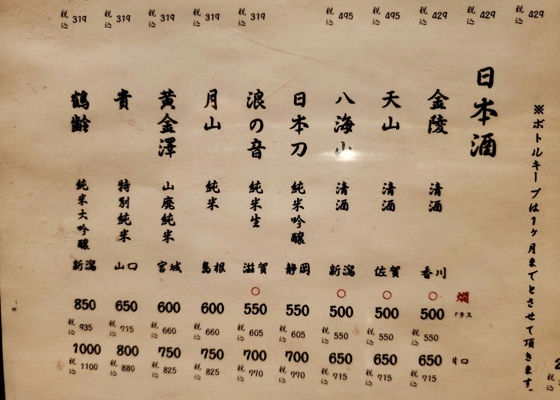 ※ボトルキープは1ヶ月までとさせて頂きます。
日本酒
燗
グラス
片口
金陵 清酒 香川 ○ 500 税込 550 650 税込 715
天山 清酒 佐賀 ○ 500 税込 550 650 税込 715
八海山 清酒 新潟 ○ 500 税込 550 650 税込 715
日本刀 純米吟醸 静岡 550 税込 605 700 税込 770
浪の音 純米生 滋賀 ○ 550 税込 605 700 税込 770
月山 純米 島根 600 税込 660 750 税込 825
黄金澤 山廃純米 宮城 600 税込 660 750 税込 825
貴 特別純米 山口 650 税込 715 800 税込 880
鶴齢 純米大吟醸 新潟 850 税込 935 1000 税込 1100
税込 429
税込 429
税込 429
税込 495
税込 495
税込 319
税込 319
税込 319
税込 319